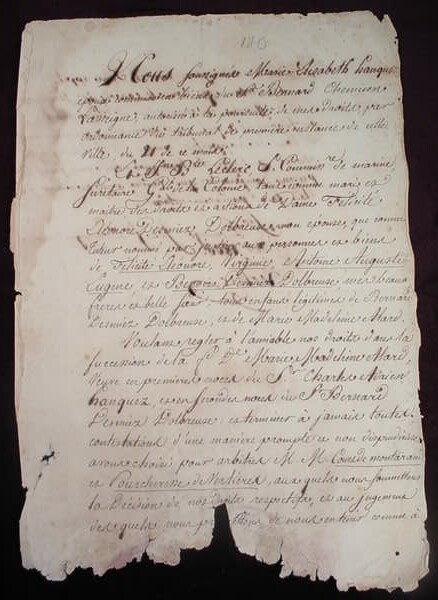 126
Nous soussignés Marie Elisabeth hauquez
épouse du Sr Bernard
autorisée à la poursuite de mes droits, par
ordonnance du tribunal de première instance de cette
ville du 21 de ce mois.
Et Bte Leclerc S. Commissre de marine
Secrétaire Gal de la Colonie tant comme mari et
maître des droits et actions de Dame Félicité
Léonore Desmiez Dolbreuse mon épouse, que comme
tuteur nommé par justice aux personnes et biens
de Félicité Léonore, Virginie, Antoine Auguste
Eugène et Bernard Desmiez Dolbreuse mes beaux
frères et belle sœur tous enfans légitimes de Bernard
Desmiez Dolbreuse, et de Marie Madeleine Mard.
Voulans régler à l'amiable nos droits dans la
succession de la fe De Marie Madeleine Mard.
Veuve en premières noces du Sr Charles Adrien
hauquez, et en secondes noces du Sr Bernard
Desmiez Dolbreuse et terminer à jamais toutes
contestations d'une manière prompte et non dispendieuse
avons choisi pour arbitres M. M. Couëde montarand
et Pourcheresse de Vertières, auxquels nous soumettons
la Décision de nos droits respectifs, et au jugement
des quels nous promettons de nous en tenir comme à